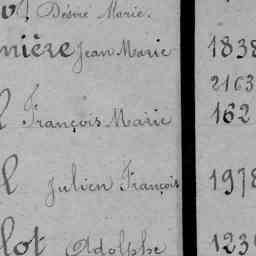 Désiré Marie.
nière Jean Marie 1838
2163
François Marie 162
l Julien François 1978
lot Adolphe 123